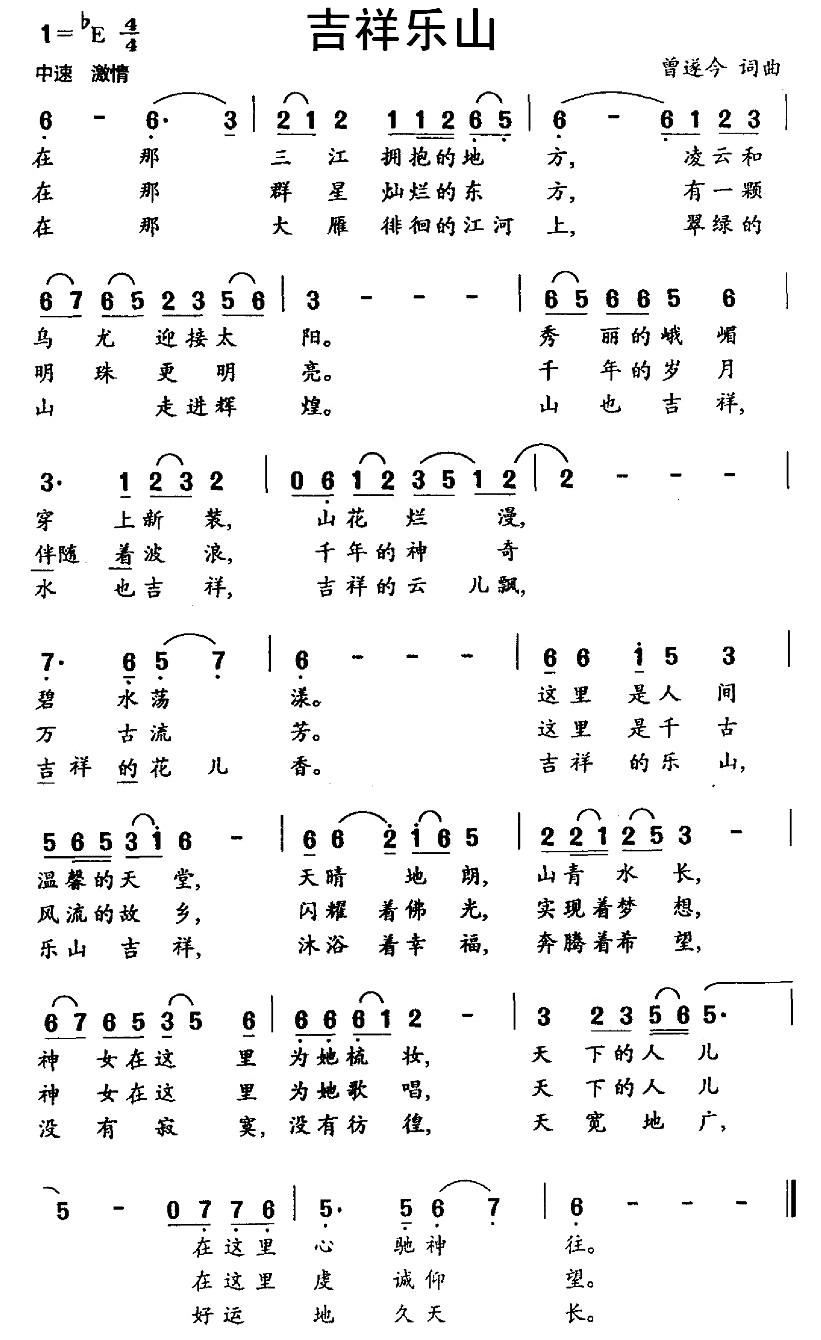 吉祥乐山
1=♭E 4/4
中速 激情
曾遂今 词曲
6 - 6· 3 | 2 1 2 1 1 2 6 5 | 6 - 6 1 2 3 |
在 那 三 江 拥抱的地 方, 凌云和
在 那 群 星 灿烂的东 方, 有一颗
在 那 大 雁 徘徊的江河 上, 翠绿的
6 7 6 5 2 3 5 6 | 3 - - - | 6 5 6 6 5 6
乌 尤 迎接太 阳。 秀 丽的峨嵋
明 珠 更 明 亮。 千 年的岁月
山 走进辉 煌。 山 也 吉 祥,
3· 1 2 3 2 | 0 6 1 2 3 5 1 2 | 2 - - - |
穿 上新 装, 山花 烂 漫,
伴随 着波 浪, 千年的神 奇
水 也吉 祥, 吉祥的云 儿飘,
7· 6 5 7 | 6 - - - | 6 6 1 5 3
碧 水荡 漾。 这里 是人 间
万 古流 芳。 这里 是千 古
吉祥 的花 儿 香。 吉祥 的乐 山,
5 6 5 3 1 6 - | 6 6 2 1 6 5 | 2 2 1 2 5 3 - |
温馨的天 堂, 天晴 地 朗, 山青 水 长,
风流的故 乡, 闪耀 着佛 光, 实现着梦 想,
乐山 吉 祥, 沐浴 着幸 福, 奔腾着希 望,
6 7 6 5 3 5 6 | 6 6 6 1 2 - | 3 2 3 5 6 5·
神 女在这 里 为她梳 妆, 天 下的人 儿
神 女在这 里 为她歌 唱, 天 下的人 儿
没 有 寂 寞, 没有彷 徨, 天 宽 地 广,
5 - 0 7 7 6 | 5· 5 6 7 | 6 - - - ‖
在这里 心 驰神 往。
在这里 虔 诚仰 望。
好运 地 久天 长。